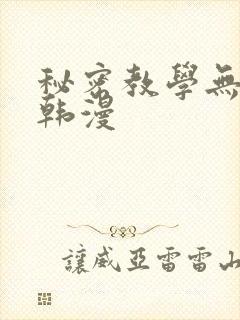 秘密教學無
韩漫
讓威亞雷雷山